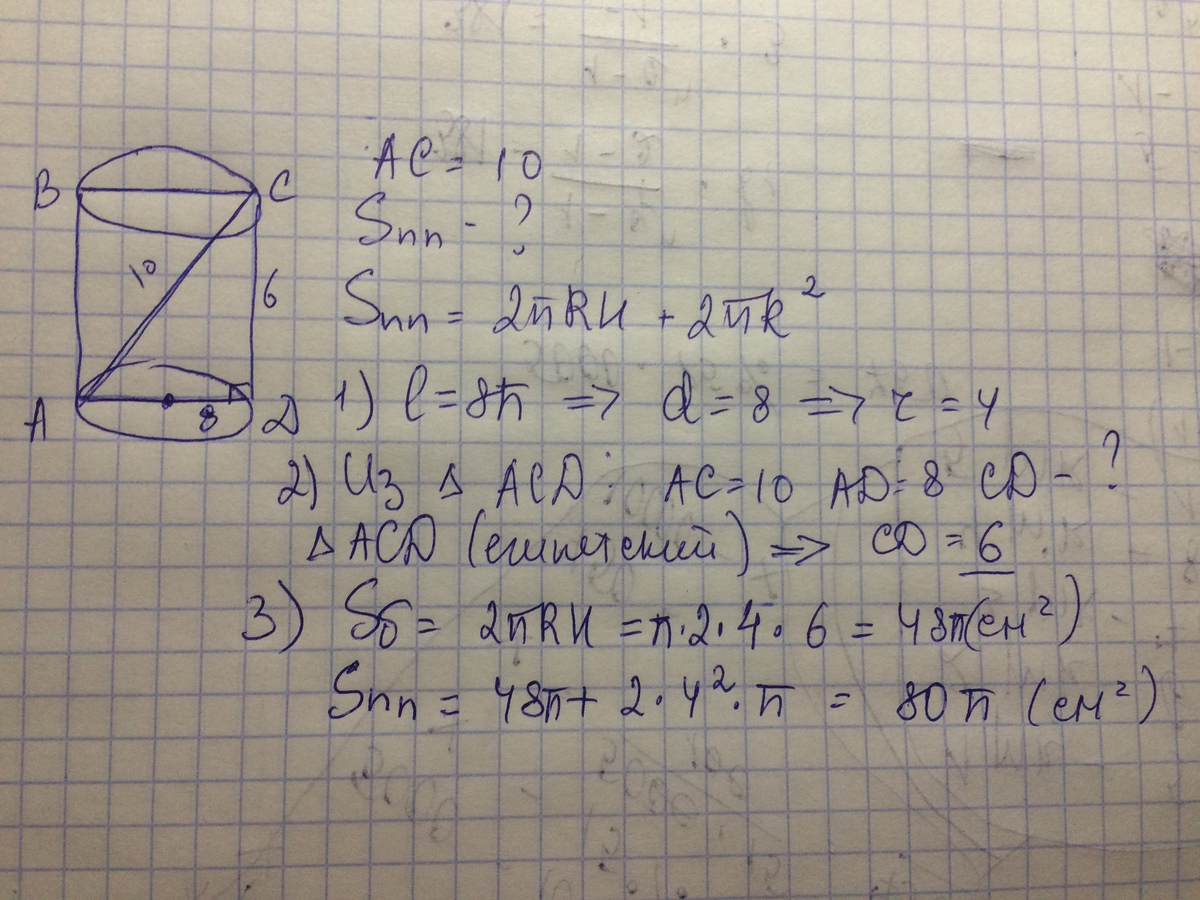 B C
10 6
A 8 D
AC = 10
Sпп - ?
Sпп = 2πRH + 2πR²
1) l = 8π => d = 8 => r = 4
2) Из Δ ACD: AC = 10 AD = 8 CD - ?
Δ ACD (египетский) => CD = 6
3) Sб = 2πRH = π·2·4·6 = 48π(см²)
Sпп = 48π + 2·4²·π = 80π (см²)